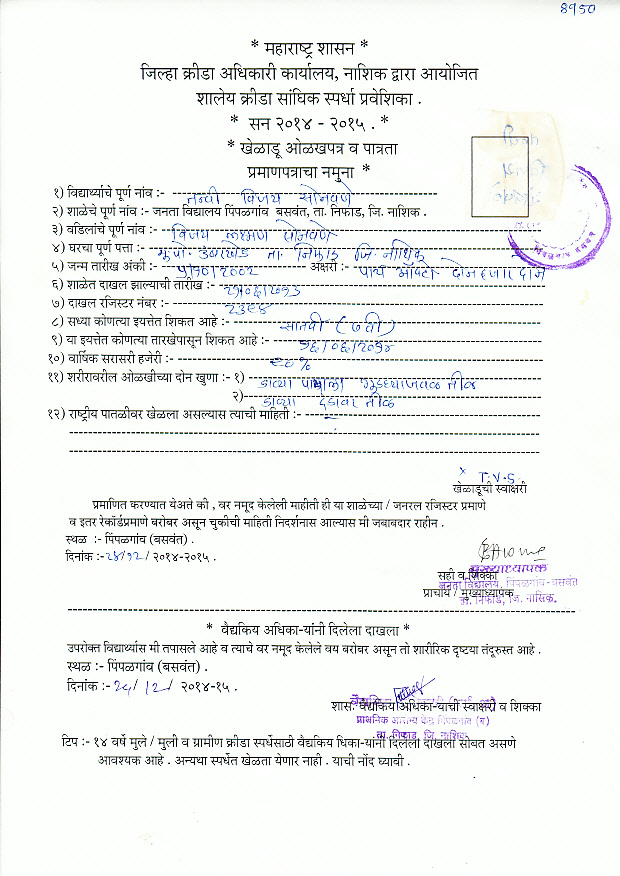 ८९५०
* महाराष्ट्र शासन *
जिल्हा क्रीडा अधिकारी कार्यालय, नाशिक द्वारा आयोजित
शालेय क्रीडा सांघिक स्पर्धा प्रवेशिका .
* सन २०१४ - २०१५ . *
* खेळाडू ओळखपत्र व पात्रता
प्रमाणपत्राचा नमुना *
१) विद्यार्थ्याचे पूर्ण नांव :- तन्वी विजय सोनवणे
२) शाळेचे पूर्ण नांव :- जनता विद्यालय पिंपळगांव बसवंत, ता. निफाड, जि. नाशिक .
३) वडिलांचे पूर्ण नांव :- विजय लक्ष्मण सोनवणे
४) घरचा पूर्ण पत्ता :- मु.पो. उंबरखेड ता. निफाड जि. नाशिक
५) जन्म तारीख अंकी :- ५/१०/२००२ अक्षरी :- पाच ऑक्टो दोन हजार दोन
६) शाळेत दाखल झाल्याची तारीख :- २१/०६/२०१३
७) दाखल रजिस्टर नंबर :- २३९४
८) सध्या कोणत्या इयत्तेत शिकत आहे :- सातवी (७ वी)
९) या इयत्तेत कोणत्या तारखेपासून शिकत आहे :- १६/०६/२०१४
१०) वार्षिक सरासरी हजेरी :- ९०%
११) शरीरावरील ओळखीच्या दोन खुणा :- १) डाव्या पायाला गुडघ्याजवळ तीळ
२) डाव्या दंडावर तीळ
१२) राष्ट्रीय पातळीवर खेळला असल्यास त्याची माहिती :-
x T.V.S.
खेळाडूची स्वाक्षरी
प्रमाणित करण्यात येअते की , वर नमूद केलेली माहीती ही या शाळेच्या / जनरल रजिस्टर प्रमाणे
व इतर रेकॉर्डप्रमाणे बरोबर असून चुकीची माहिती निदर्शनास आल्यास मी जबाबदार राहीन .
स्थळ :- पिंपळगांव (बसवंत) .
दिनांक :- २४/१२/ २०१४-२०१५ .
मुख्याध्यापक
सही व शिक्का
जनता विद्यालय, पिंपळगांव-बसवंत
प्राचार्य / मुख्याध्यापक
ता. निफाड, जि. नासिक.
* वैद्यकिय अधिका-यांनी दिलेला दाखला *
उपरोक्त विद्यार्थ्यास मी तपासले आहे व त्याचे वर नमूद केलेले वय बरोबर असून तो शारीरिक दृष्टया तंदूरुस्त आहे .
स्थळ :- पिंपळगांव (बसवंत) .
दिनांक :- २८/१२/ २०१४-१५ .
शास. वैद्यकिय अधिका-याची स्वाक्षरी व शिक्का
ता. निफाड, जि. नाशिक
टिप :- १४ वर्षे मुले / मुली व ग्रामीण क्रीडा स्पर्धेसाठी वैद्यकिय धिका-यांनी दिलेला दाखला सोबत असणे
आवश्यक आहे . अन्यथा स्पर्धेत खेळता येणार नाही . याची नोंद घ्यावी .